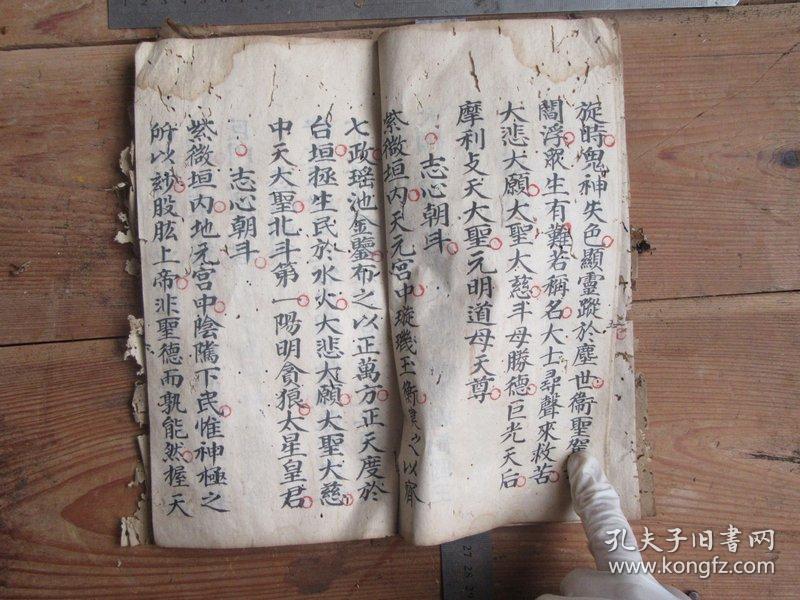 旋時鬼神失色顯靈蹤於塵世衞聖駕
閻浮眾生有難若稱名大士尋聲來救苦
大悲大願大聖大慈斗母勝德巨光天后
摩利攴天大聖元明道母天尊
志心朝斗
紫微垣内天元宮中璇璣玉衡美之以齊
七政瑤池金鑒布之以正萬方正天度於
台垣拯生民於水火大悲大願大聖大慈
中天大聖北斗第一陽明貪狼太星皇君
志心朝斗
紫微垣内地元宮中陰隲下民惟神極之
所以紗股肱上帝非聖德而孰能然握天
孔夫子旧书网
www.kongfz.com
27 28 29